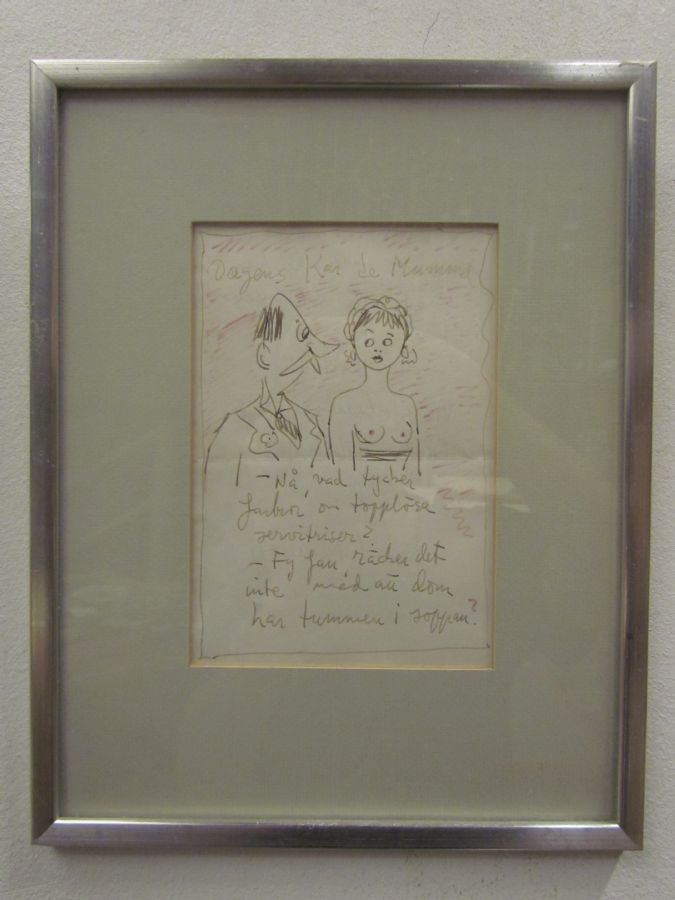 Dagens Kar de Mumma
- Nå, vad tycker
farbror om topplösa
servitriser?
- Fy fan, räcker det
inte med att dom
har tummen i soppan?